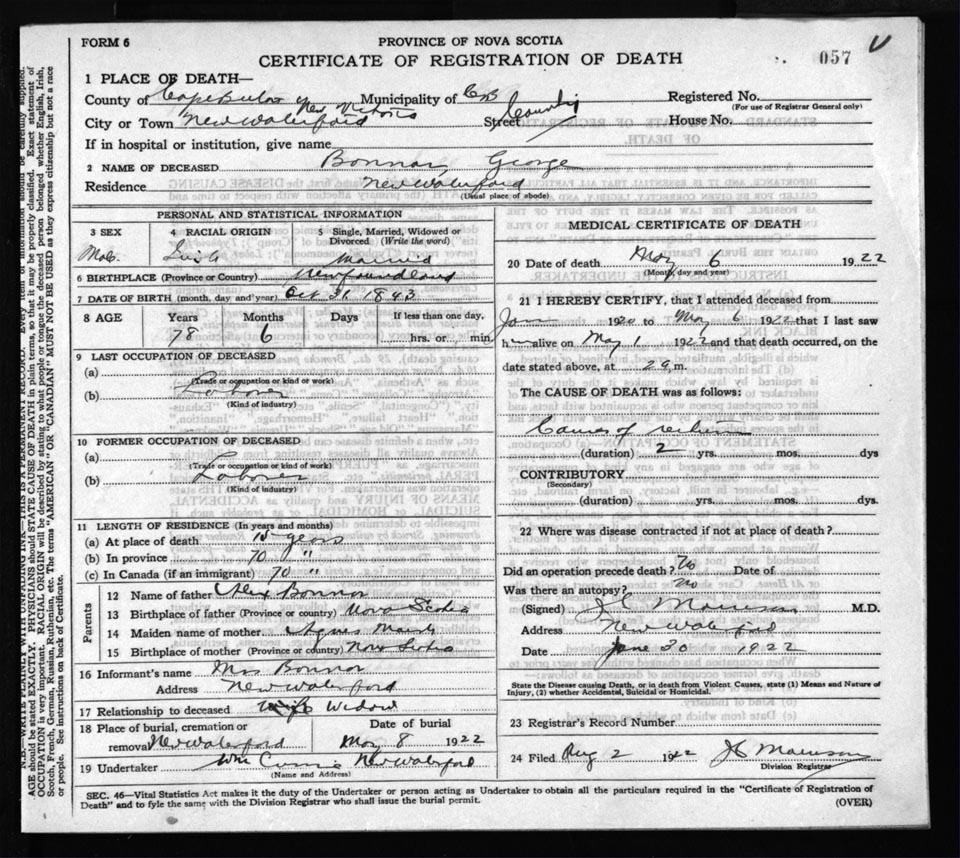 FORM 6
PROVINCE OF NOVA SCOTIA
CERTIFICATE OF REGISTRATION OF DEATH
057
1 PLACE OF DEATH—
County of Cape Breton Municipality of C B County Registered No.
(For use of Registrar General only)
City or Town New Waterford New Victoria Street House No.
If in hospital or institution, give name
2 NAME OF DECEASED Bonnar, George
Residence New Waterford
(Usual place of abode)
PERSONAL AND STATISTICAL INFORMATION
3 SEX
4 RACIAL ORIGIN
5 Single, Married, Widowed or Divorced (Write the word)
Male Irish Married
6 BIRTHPLACE (Province or Country) Newfoundland
7 DATE OF BIRTH (month, day and year) Oct 31, 1843
8 AGE Years Months Days If less than one day,
78 6 hrs. or min.
9 LAST OCCUPATION OF DECEASED
(a)
(Trade or occupation or kind or work)
(b) Laborer
(Kind of industry)
10 FORMER OCCUPATION OF DECEASED
(a)
(Trade or occupation or kind of work)
(b) Laborer
(Kind of industry)
11 LENGTH OF RESIDENCE (In years and months)
(a) At place of death 15 years
(b) In province 70 "
(c) In Canada (if an immigrant) 70 "
Parents
12 Name of father Alex Bonnar
13 Birthplace of father (Province or country) Nova Scotia
14 Maiden name of mother Agnes
15 Birthplace of mother (Province or country) Nova Scotia
16 Informant's name Mrs Bonnar
Address New Waterford
17 Relationship to deceased Widow
18 Place of burial, cremation or removal New Waterford
Date of burial May 8 1922
19 Undertaker Wm New Waterford
(Name and Address)
MEDICAL CERTIFICATE OF DEATH
20 Date of death May 6 1922
(Month, day and year)
21 I HEREBY CERTIFY, that I attended deceased from
Jan 1920 to May 6 1922 that I last saw
him alive on May 1 1922 and that death occurred, on the
date stated above, at 2 a.m.
The CAUSE OF DEATH was as follows:
of
(duration) 2 yrs. mos. dys
CONTRIBUTORY
(Secondary)
(duration) yrs. mos. dys.
22 Where was disease contracted if not at place of death?
Did an operation precede death? No Date of
Was there an autopsy? No
(Signed) J C Morrison M.D.
Address New Waterford
Date June 30 1922
State the Disease causing Death, or in death from Violent Causes, state (1) Means and Nature of Injury, (2) whether Accidental, Suicidal or Homicidal.
23 Registrar's Record Number
24 Filed Aug 2 1922 J C Morrison
Division Registrar
SEC. 46—Vital Statistics Act makes it the duty of the Undertaker or person acting as Undertaker to obtain all the particulars required in the "Certificate of Registration of
Death" and to fyle the same with the Division Registrar who shall issue the burial permit.
(OVER)
N.B.—WRITE PLAINLY WITH UNFADING INK—THIS IS A PERMANENT RECORD. Every item of information should be carefully supplied.
AGE should be stated EXACTLY. PHYSICIANS should STATE CAUSE OF DEATH in plain terms, so that it may be properly classified. Exact statement of
OCCUPATION is very important. RACIAL ORIGIN will be described by stating to what people or tongue the deceased person belonged whether English, Irish,
Scotch, French, German, Russian, Ruthenian, etc. The terms "AMERICAN" OR "CANADIAN" MUST NOT BE USED as they express citizenship but not a race
or people. See instructions on back of Certificate.